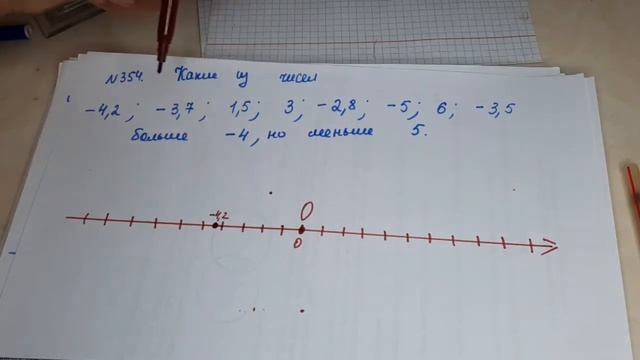 №354. Какие из чисел
-4,2; -3,7; 1,5; 3; -2,8; -5; 6; -3,5
больше -4, но меньше 5.
O
-4,2
0